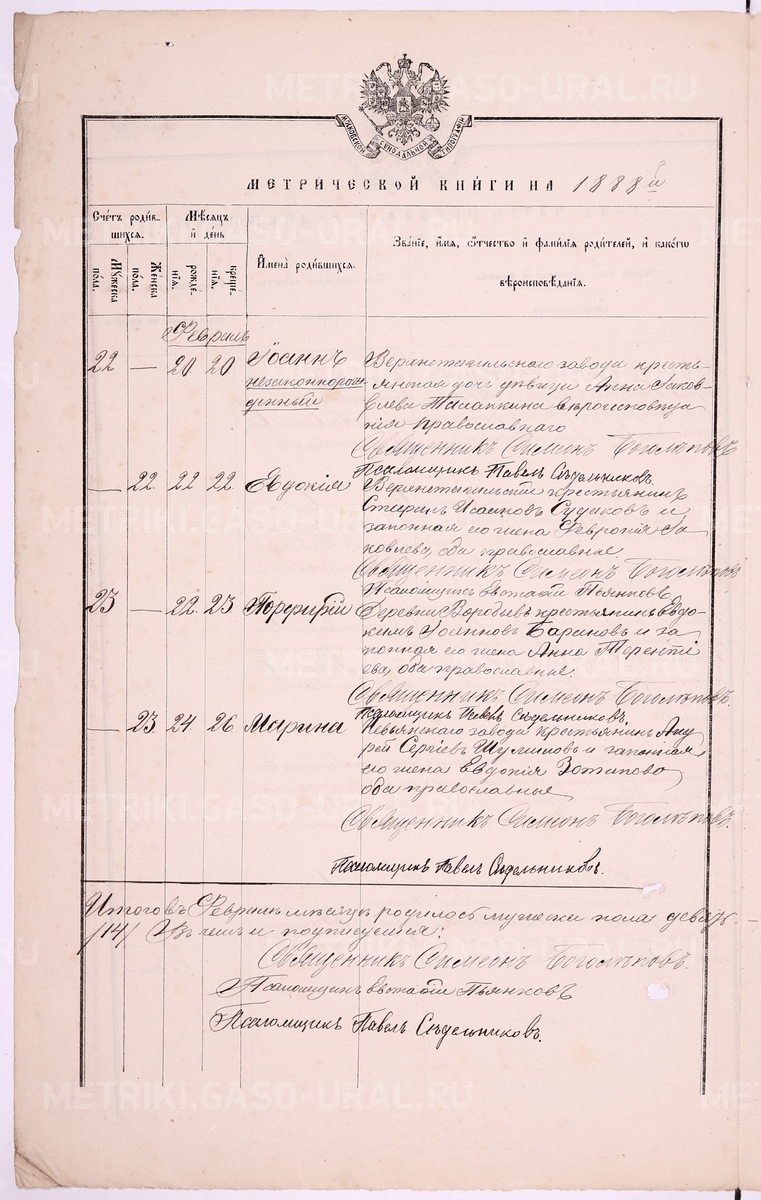 МОСКОВСКОЙ СѴНОДАЛЬНОЙ ТИПОГРАФІИ
МЕТРИЧЕСКОЙ КНИГИ НА 1888 й
Счетъ родившихся.
Мѣсяцъ и день
Имена родившихся.
Званіе, имя, отчество и фамилія родителей, и какого вѣроисповѣданія.
Мужеска пола.
Женска пола.
рожденія.
крещенія.
Февраль
22 — 20 20 Іоаннъ Верхнетагильскаго завода кресть-
незаконнорож янская дочь дѣвица Анна Яков-
денный лева вѣроисповѣда
нія православнаго
Священникъ Симеонъ Боголѣповъ
Псаломщикъ Павелъ Сѣдельниковъ.
— 22 22 22 Евдокія Верхнетагильскій крестьянинъ
Стефанъ Исааковъ Судаковъ и
законная его жена Февронія Я
ковлева, оба православные
Священникъ Симеонъ Боголѣповъ
Псаломщикъ Евстафій Пьянковъ
23 — 22 23 Порфирій Деревни Воробьевъ крестьянинъ Евдо-
кимъ Іоанновъ Бариновъ и за
конная его жена Анна Теренті
ева, оба православные.
Священникъ Симеонъ Боголѣповъ.
Псаломщикъ Павелъ Сѣдельниковъ.
— 23 24 26 Марина Невьянскаго завода крестьянинъ Анд
рей Сергіевъ и законная
его жена Евдокія Зотикова
оба православные
Священникъ Симеонъ Боголѣповъ.
Псаломщикъ Павелъ Сѣдельниковъ.
Итого въ Февралѣ мѣсяцѣ родилось мужеска пола девять
/14/ Въ чемъ и подписуемся:
Священникъ Симеонъ Боголѣповъ.
Псаломщикъ Евстафій Пьянковъ
Псаломщикъ Павелъ Сѣдельниковъ.
METRIKI.GASO-URAL.RU